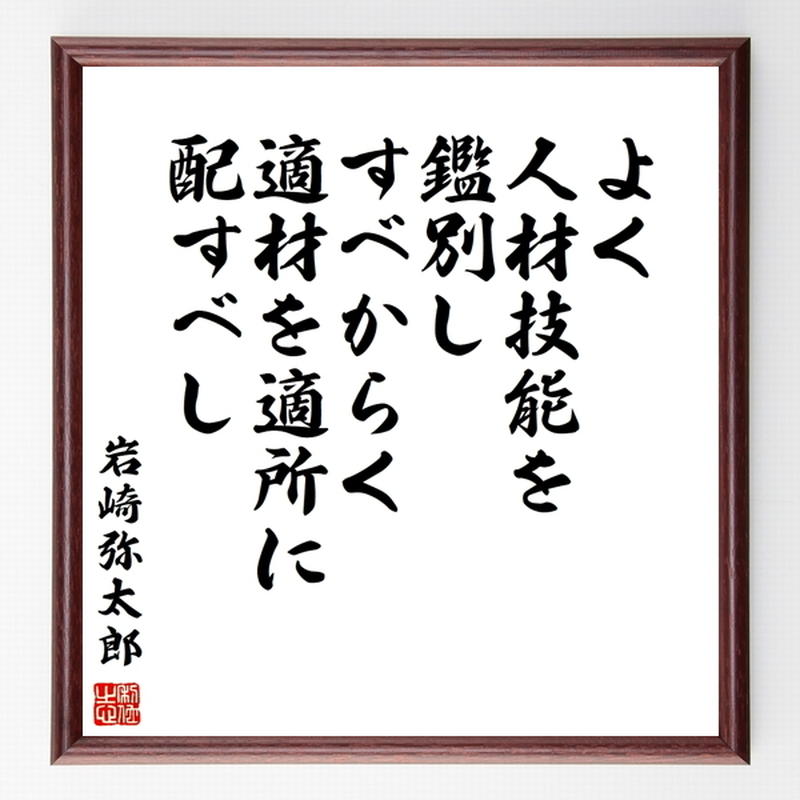 よく
人材技能を
鑑別し
すべからく
適材を適所に
配すべし
岩崎弥太郎